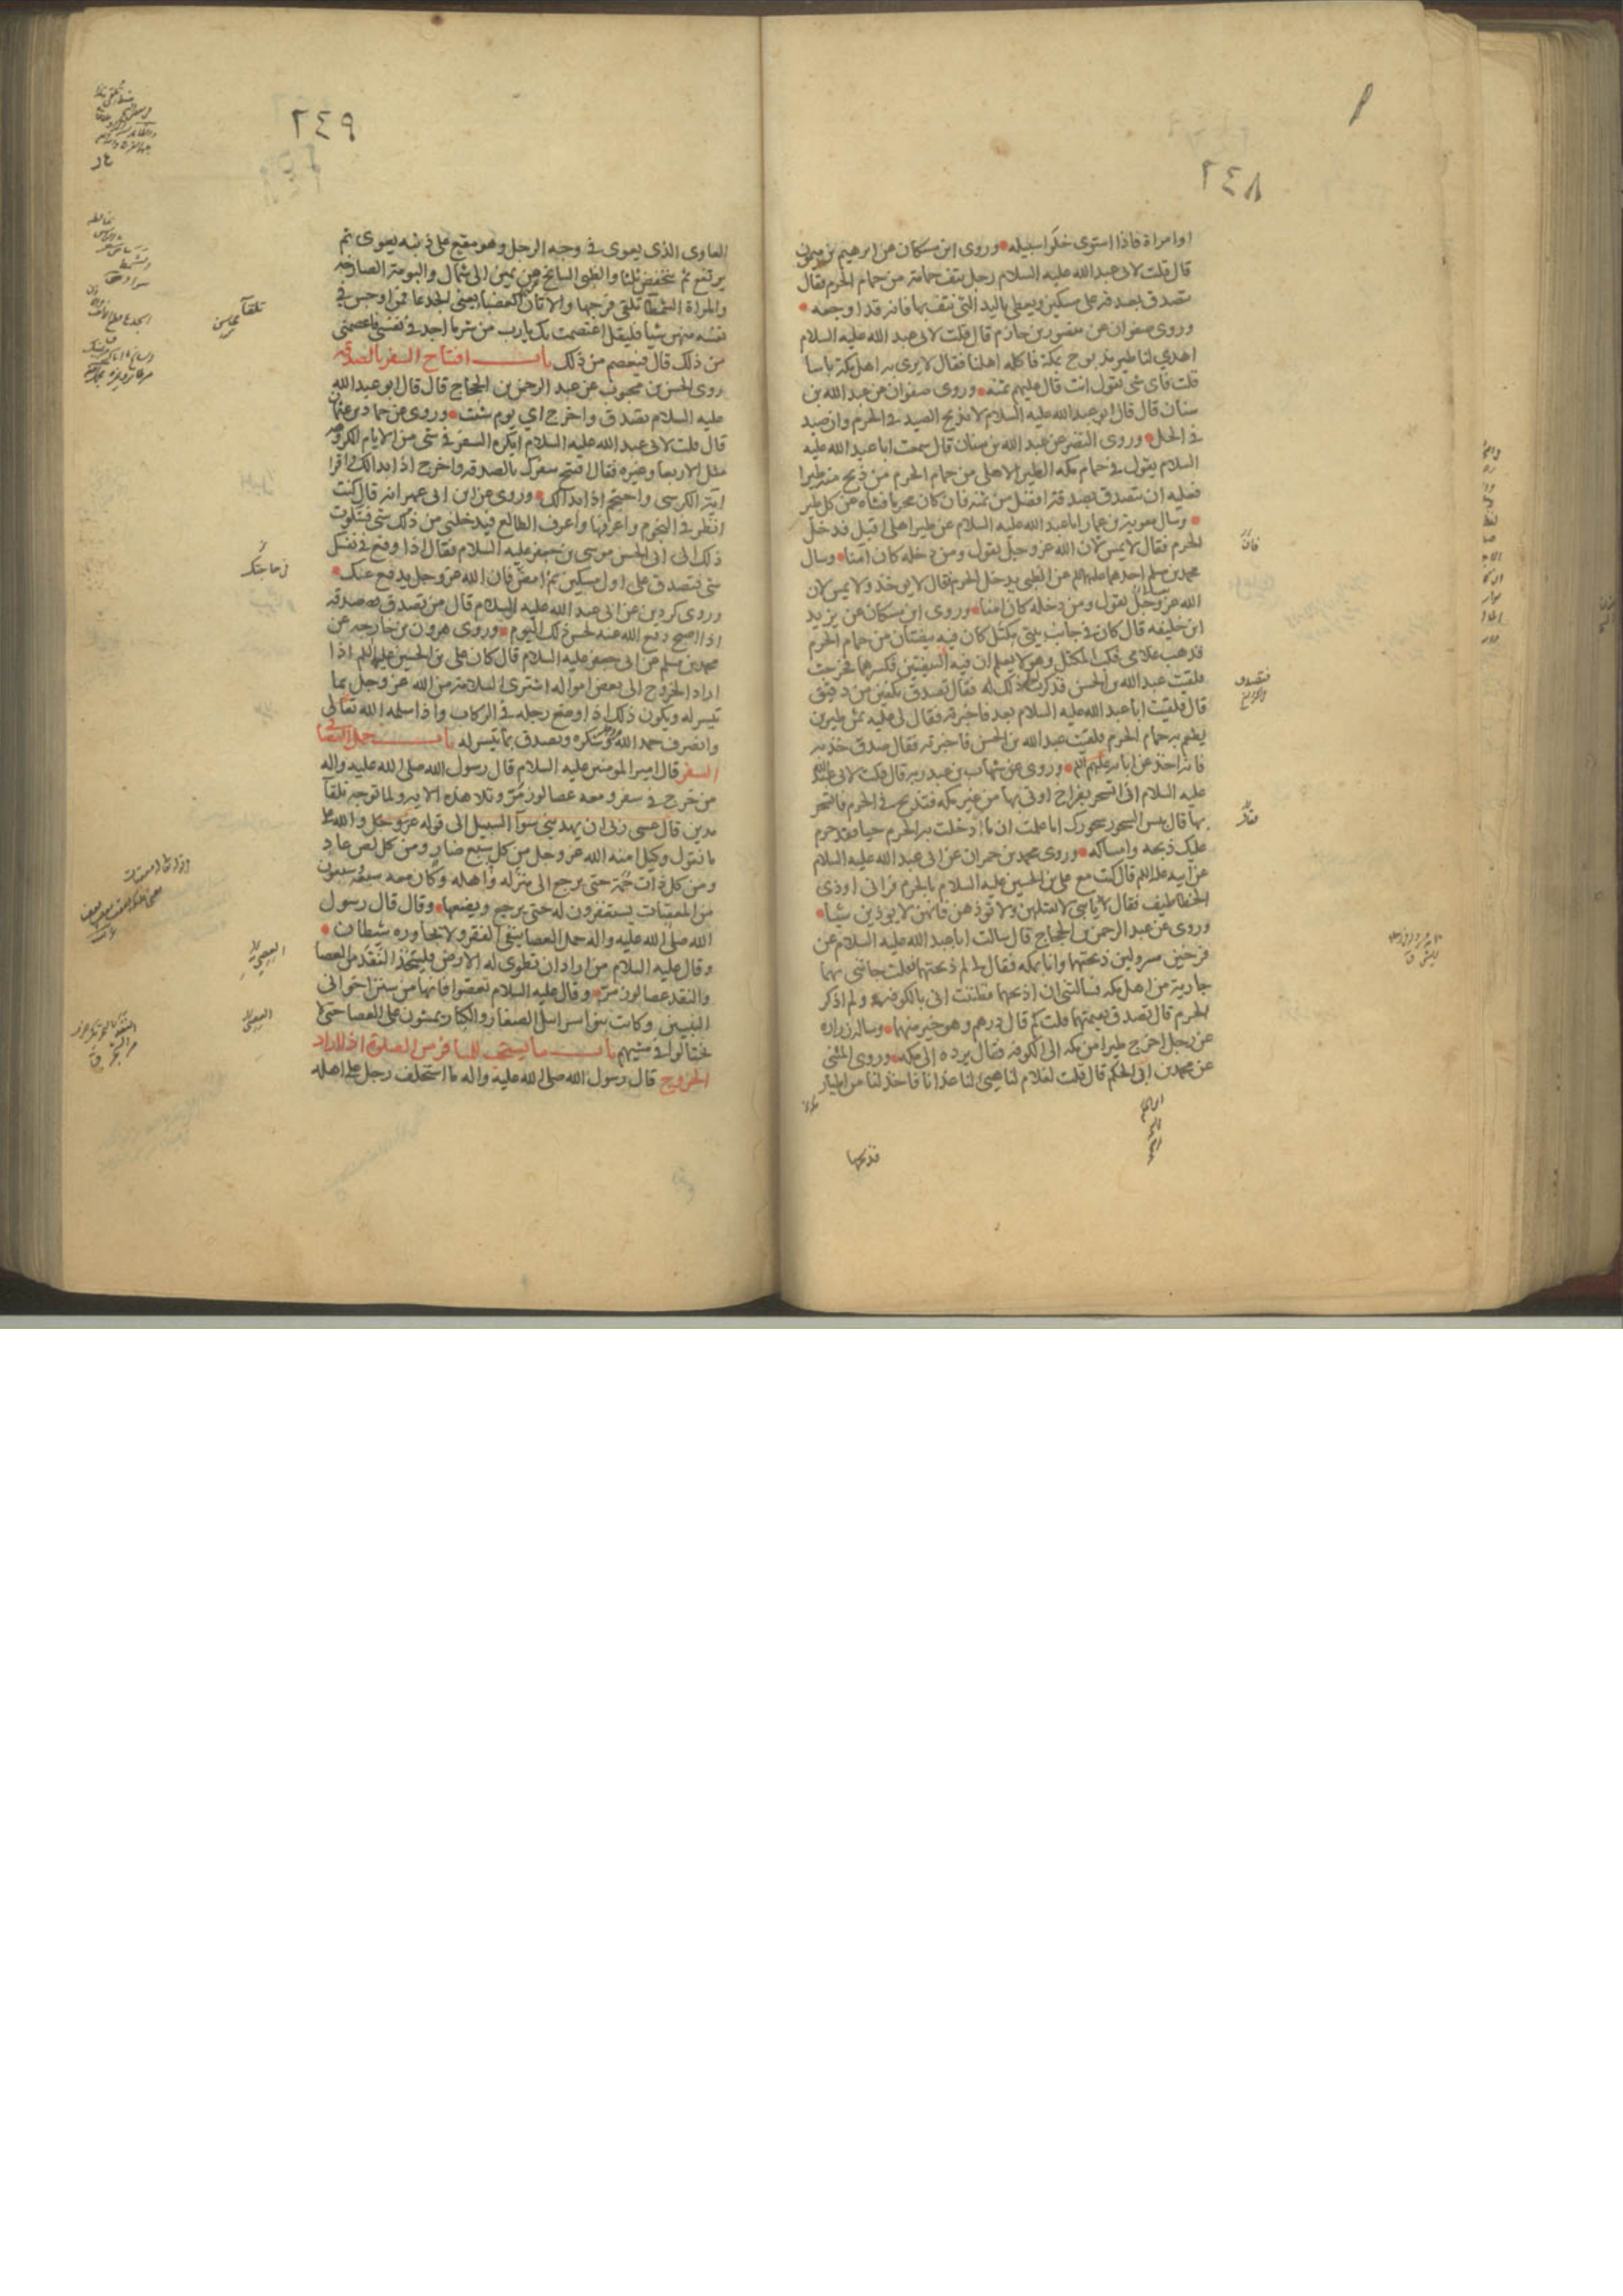 ٢٤٨
او امراة فاذا استوى خلوا سبيله وروى ابن مسكان عن ابرهيم بن ميمون
قال قلت لابى عبد الله عليه السلام رجل نتف حمامة من حمام الحرم فقال
يتصدق بصدقة على مسكين ويعطى باليد التى نتف بها فانه قد اوجعه
وروى صفوان عن منصور بن حازم قال قلت لابى عبد الله عليه السلام
اهدى لنا طير مذبوح بمكة فاكله اهلنا فقال لا يرى به اهل مكة بأسا
قلت فاى شئ تقول انت قال عليهم ثمنه وروى صفوان عن عبد الله بن
سنان قال قال ابو عبد الله عليه السلام لا تذبح الصيد فى الحرم وان صيد
فى الحل وروى النضر عن عبد الله بن سنان قال سمعت ابا عبد الله عليه
السلام يقول فى حمام مكه الطير الاهلى من حمام الحرم من ذبح منه طيرا
فعليه ان يتصدق بصدقة افضل من ثمنه فان كان محرما فشاة عن كل طير
وسال معوية بن عمار ابا عبد الله عليه السلام عن طير اهلى اقبل فدخل
الحرم فقال لا يمس لان الله عز وجل يقول ومن دخله كان امنا وسال
محمد بن مسلم احدهما عليهما السلم عن الظبى يدخل الحرم فقال لا يوخذ ولا يمس لان
الله عز وجل يقول ومن دخله كان امنا وروى ابن مسكان عن يزيد
ابن خليفه قال كان فى جانب بيتى مكتل كان فيه بيضتان من حمام الحرم
فذهب غلامى فكب المكتل وهو لا يعلم ان فيه البيضتين فكسرهما فخرجت
فلقيت عبد الله بن الحسن فذكرت ذلك له فقال تصدق بكفين من دقيق
قال فلقيت ابا عبد الله عليه السلام بعد فاخبرته فقال لى عليه ثمن طيرين
يطعم به حمام الحرم فلقيت عبد الله بن الحسن فاخبرته فقال صدق خذ به
فانه اخذ عن ابائه عليهم السلم وروى عن شهاب بن عبد ربه قال قلت لابى عبد الله
عليه السلام انى اتسحر بفراخ اوتى بها من غير مكه فتذبح فى الحرم فاتسحر
بها قال بئس السحور سحورك اما علمت ان ما ادخلت به الحرم حيا فقد حرم
عليك ذبحه وامساكه وروى محمد بن حمران عن ابى عبد الله عليه السلام
عن ابيه عليه السلم قال كنت مع على بن الحسين عليه السلام بالحرم فرانى اوذى
الخطاطيف فقال لا يابنى لا تقتلهن ولا توذهن فانهن لا يوذين شيئا
وروى عن عبد الرحمن بن الحجاج قال سالت ابا عبد الله عليه السلام عن
فرخين مسرولين ذبحتهما وانا بمكه فقال لى لم ذبحتهما فقلت جائتنى بهما
جارية من اهل مكه فسالتنى ان اذبحهما فظننت انى بالكوفه ولم اذكر
الحرم قال تصدق بقيمتهما قلت كم قال درهم وهو خير منهما وساله زراره
عن رجل اخرج طيرا من مكه الى الكوفه فقال يرده الى مكه وروى المثنى
عن محمد بن ابى الحكم قال قلت لغلام لنا هيئ لنا غدانا فاخذ لنا من اطيار
فذبحها
٢٤٩
العاوى الذى يعوى فى وجه الرجل وهو مقع على ذنبه يعوى ثم
يرتفع ثم ينخفض ثلثا والظبى السانح من يمين الى شمال والبومة الصارخه
والمراة الشمطا تلقى فرجها والاتان العضبا يعنى الجدعا فمن اوجس فى
نفسه منهن شيا فليقل اعتصمت بك يارب من شر ما اجد فى نفسى فاعصمنى
من ذلك قال فيعصم من ذلك باب افتتاح السفر بالصدقه
روى الحسن بن محبوب عن عبد الرحمن بن الحجاج قال قال ابو عبد الله
عليه السلام تصدق واخرج اى يوم شئت وروى عن حماد بن عثمان
قال قلت لابى عبد الله عليه السلام ايكره السفر فى شئ من الايام المكروهه
مثل الاربعا وغيره فقال افتتح سفرك بالصدقه واخرج اذا بدا لك واقرا
اية الكرسى واحتجم اذا بدا لك وروى عن ابن ابى عمير انه قال كنت
انظر فى النجوم واعرفها واعرف الطالع فيدخلنى من ذلك شئ فشكوت
ذلك الى ابى الحسن موسى بن جعفر عليه السلام فقال اذا وقع فى نفسك
شئ فتصدق على اول مسكين ثم امض فان الله عز وجل يدفع عنك
وروى كردين عن ابى عبد الله عليه السلام قال من تصدق بصدقه
اذا اصبح دفع الله عنه نحس ذلك اليوم وروى هرون بن خارجه عن
محمد بن مسلم عن ابى جعفر عليه السلام قال كان على بن الحسين عليهما السلم اذا
اراد الخروج الى بعض امواله اشترى السلامة من الله عز وجل بما
تيسر له ويكون ذلك اذا وضع رجله فى الركاب واذا سلمه الله تعالى
وانصرف حمد الله وشكره وتصدق بما تيسر له باب حمل العصا فى
السفر قال امير المومنين عليه السلام قال رسول الله صلى الله عليه واله
من خرج فى سفر ومعه عصا لوز مر وتلا هذه الايه ولما توجه تلقآ
مدين قال عسى ربى ان يهدينى سوآ السبيل الى قوله عز وجل والله على
ما نقول وكيل امنه الله عز وجل من كل سبع ضار ومن كل لص عاد
ومن كل ذات حمة حتى يرجع الى منزله واهله وكان معه سبعة وسبعون
من المعقبات يستغفرون له حتى يرجع ويضعها وقال قال رسول
الله صلى الله عليه واله حمل العصا ينفى الفقر ولا يجاوره شيطان
وقال عليه السلام من اراد ان تطوى له الارض فليتخذ النقد من العصا
والنقد عصا لوز مر وقال عليه السلام تعصوا فانها من سنن اخوانى
النبيين وكانت بنو اسرائيل الصغار والكبار يمشون على العصا حتى لا
يختالوا فى مشيهم باب ما يستحب للمسافر من الصلوة اذا اراد
الخروج قال رسول الله صلى الله عليه واله ما استخلف رجل على اهله